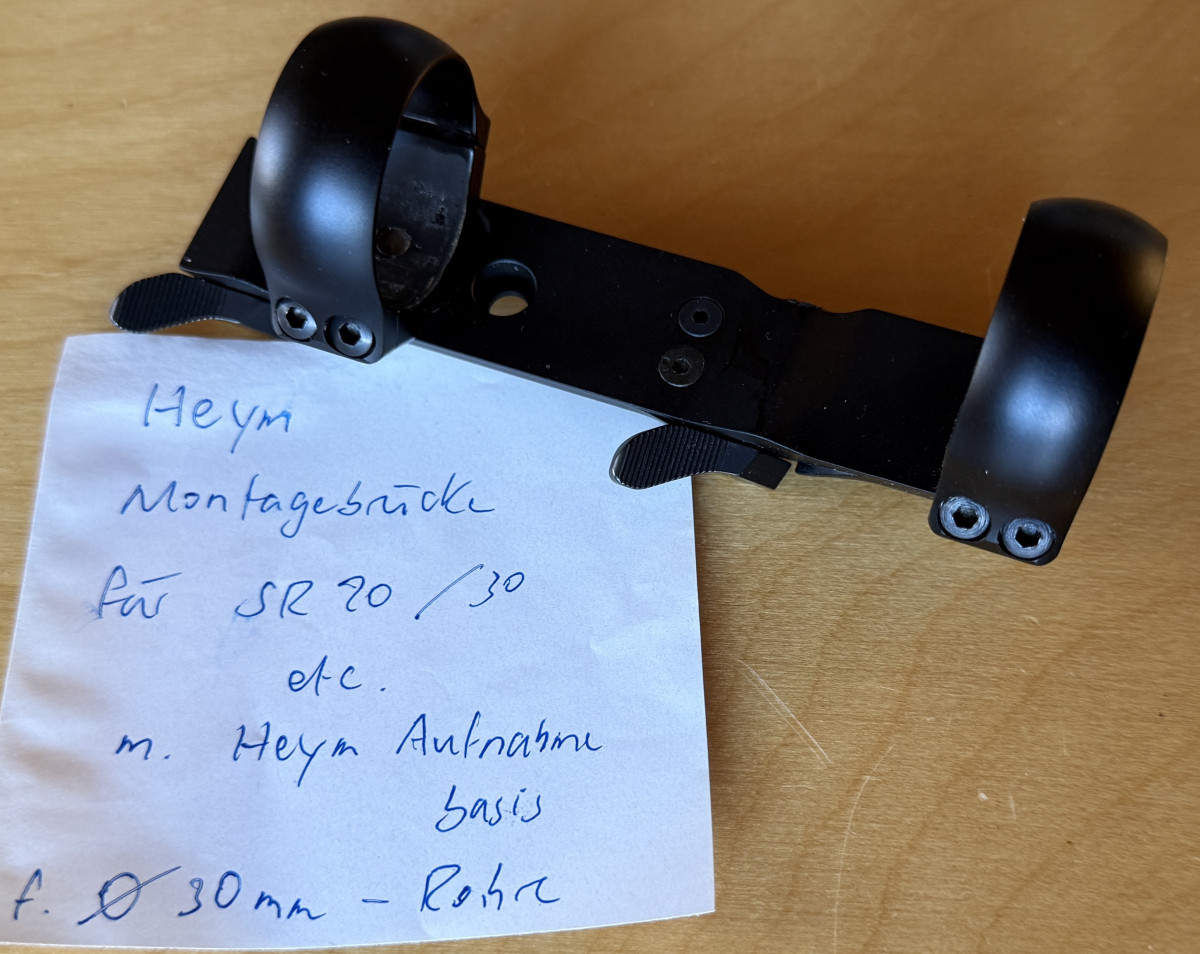 Heym
Montagebrücke
für SR 20 / 30
etc.
m. Heym Aufnahme
basis
f. Ø 30 mm - Rohre